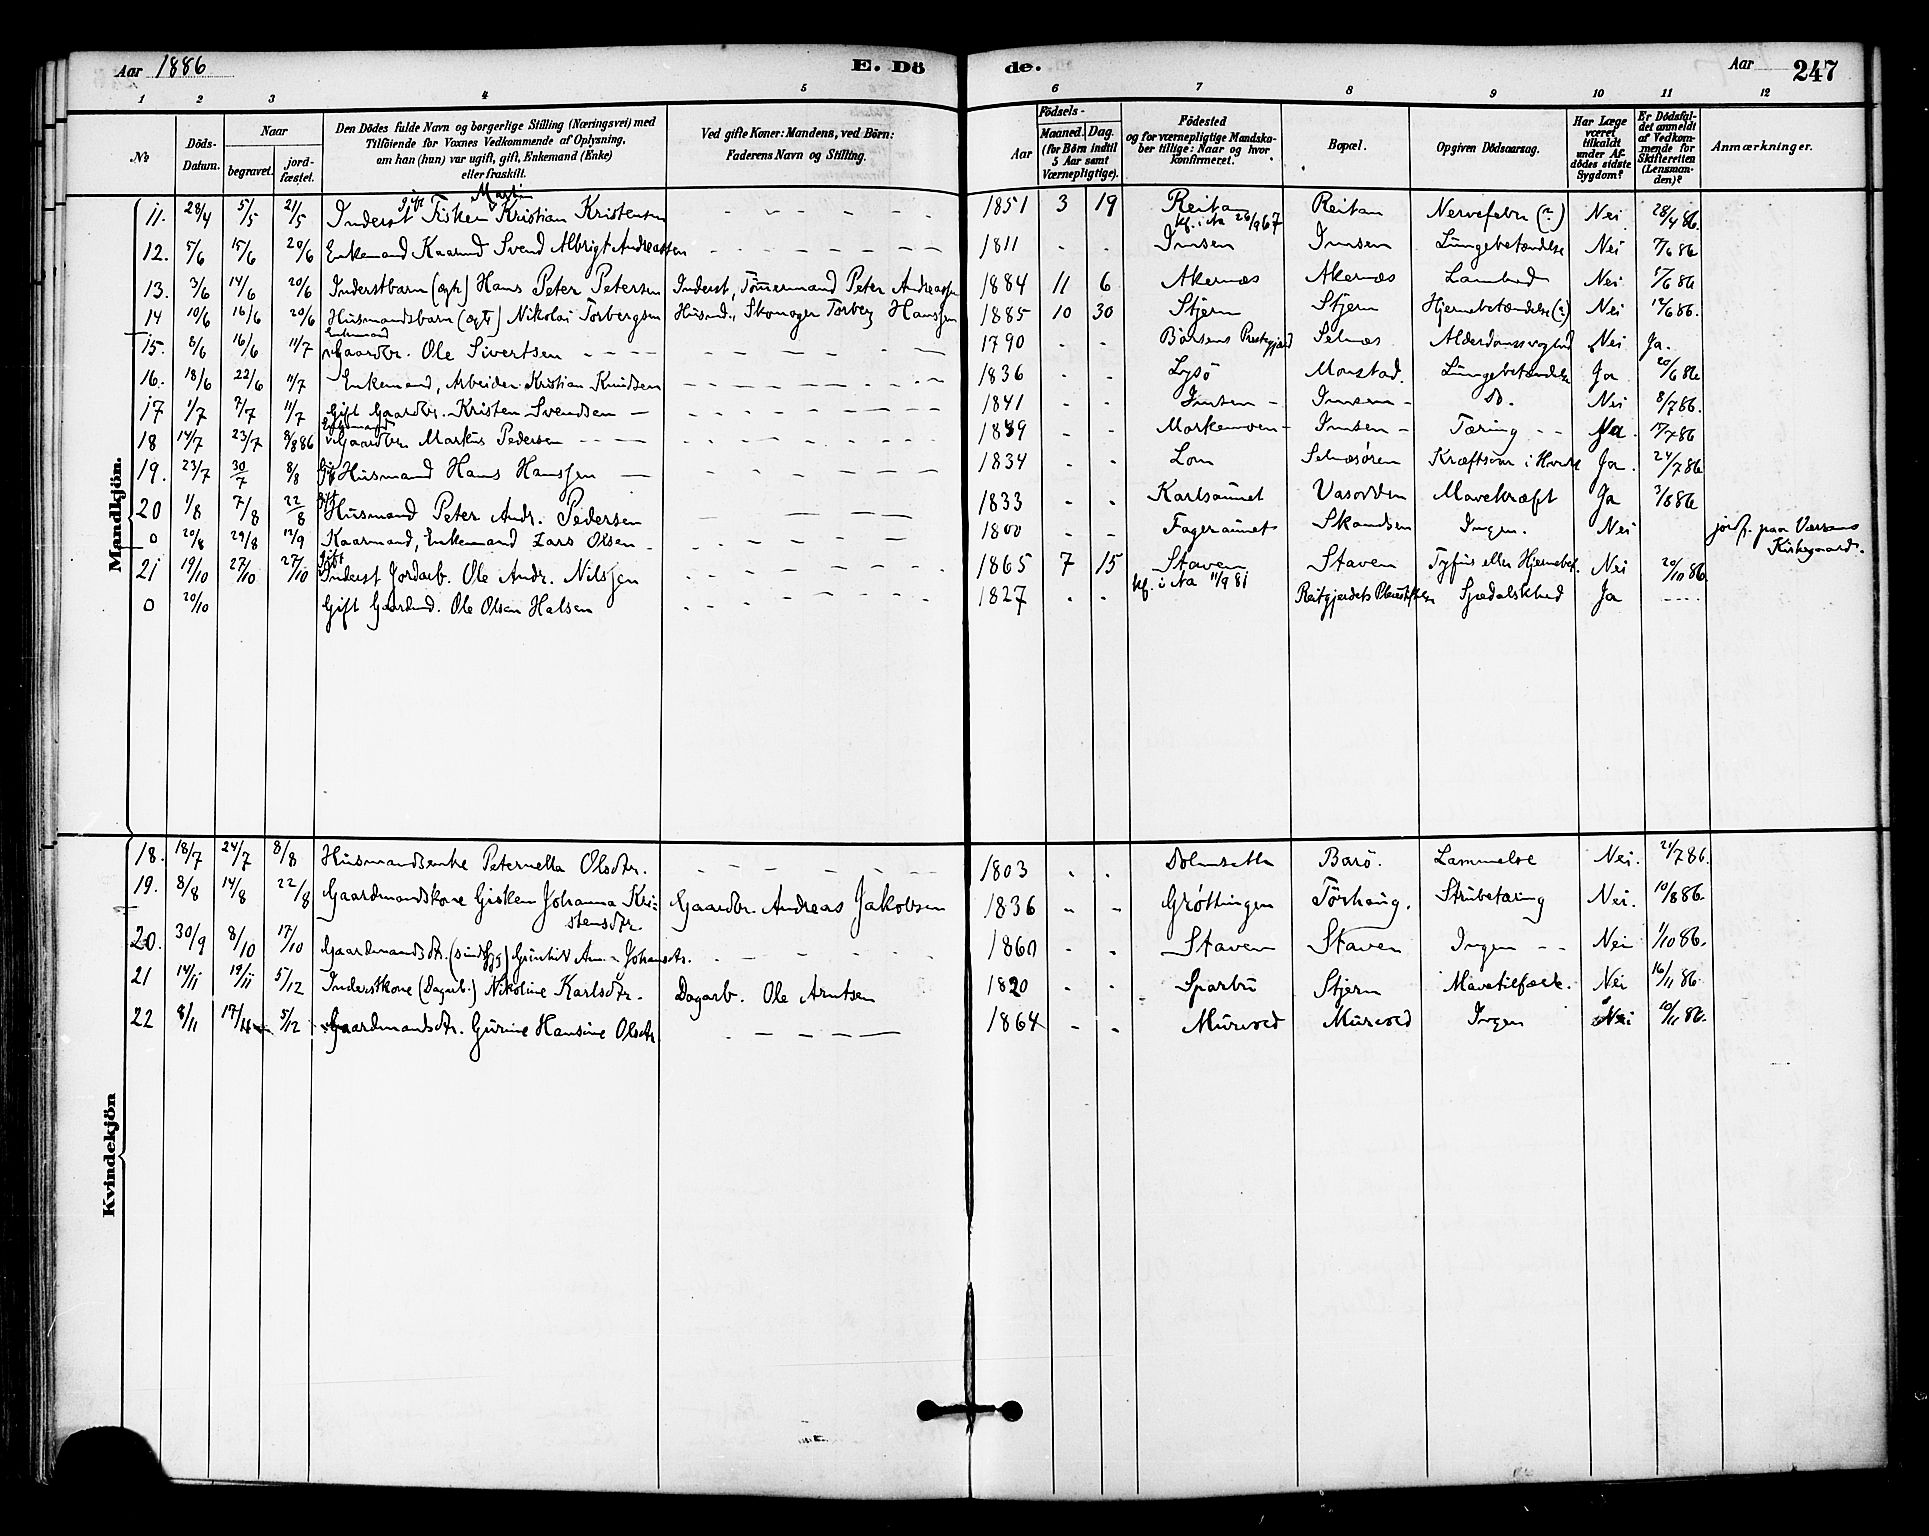 Aar 1886 E. Döde. Aar 247
1 2 3 4 5 6 7 8 9 10 11 12
No Döds-Datum. Naar begravet. jordfæstet. Den Dödes fulde Navn og borgerlige Stilling (Næringsvei) med Tilföiende for Voxnes Vedkommende af Oplysning, om han (hun) var ugift, gift, Enkemand (Enke) eller fraskilt. Ved gifte Koner: Mandens, ved Børn: Faderens Navn og Stilling. Aar Födsels- Maaned. Dag. (for Börn indtil 5 Aar samt Værnepligtige). Födested og for værnepligtige Mandskaber tillige: Naar og hvor konfirmeret. Bopæl. Opgiven Dödsaarsag. Har Læge været tilkaldt under Afdödes sidste Sygdom? Er Dödsfaldet anmeldt af Vedkommende for Skifteretten (Lensmanden)? Anmærkninger.
Mandkjön.
11. 28/4 5/5 21/5 Inderst gift Fisker Kristian Martin Kristensen - - - - - 1851 3 19 Reitan kf. i Na 26/9 67 Reitan Nervefeber (?) Nei 28/4 86.
12. 5/6 15/6 20/6 Enkemand Kaarmd Svend Albrigt Andreassen - - - - - 1811 - - Imsen Imsen Lungebetændelse Nei 7/6 86
13. 3/6 14/6 20/6 Inderstbarn (ægte) Hans Peter Petersen Inderst, Tömmermand Peter Andreassen 1884 11 6 Akernæs Akernæs Lamhed Nei 17/6 86
14 10/6 16/6 20/6 Husmandsbarn (ægte) Nikolai Torbergsen Husmd., Skomager Torberg Hanssen 1885 10 30 Stjern Stjern Hjernebetændelse (?) Nei 12/6 86.
15. 8/6 16/6 11/7 Enkemand Gaardbr. Ole Sivertsen - - - - 1790 - - Börsens Prestegjæld Selnæs Alderdomssvaghed Nei Ja.
16. 18/6 22/6 11/7 Enkemand, Arbeider Kristian Knudsen - - - - 1836 - - Lysö Monstad. Lungebetændelse Ja 20/6 86
17 1/7 7/7 11/7 Gift Gaardbr. Kristen Svendsen - - - - 1841 - - Imsen - Imsen - Do. Nei 8/7 86.
18 14/7 23/7 8/8 86 Enkemand Gaardbr. Markus Pedersen - - - - - - Imsen - Tæring - - 17/7 86
19. 23/7 30/7 8/8 Gift Husmand Hans Hanssen - 1834 - - Lom Selnæsören Kræftsvær i Ja. 24/7 86
20 1/8 7/8 22/8 gift Husmand Peter Andr. Pedersen - - - - 1833 - - Karlsaunet Vasodden Mavekræft Ja 3/8 86
0 20/8 29/8 12/9 Kaarmand, Enkemand Lars Olsen - - - - 1800 - - Fageraunet Skandsen Ingen. Nei jordf. paa Værrans Kirkegaard.
21 19/10 27/10 27/10 gift Inderst Jordarb. Ole Andr. Nilssen - - - - 1865 7 15 Staven kf. i Na 11/9 81 Staven Tyfus eller Hjernebet. Nei 20/10 86.
0 20/10 Gift Gaardmd. Ole Olsen Halsen - - - - 1827 - - Reitgjerdets Pleiestiftelse Spedalskhed Ja - - - -
Kvindekjön
18. 18/7 24/7 8/8 Husmandsenke Peternella Olsdtr. - - - - 1803 - - Barö. Lammelse Nei. 21/7 86.
19. 8/8 14/8 22/8 Gaardmandskone Gisken Johanna Kristensdtr. Gaardbr. Andreas Jakobsen 1836 - - Grøttingen Törhaug. Strubetæring Nei. 10/8 86.
20. 30/9 8/10 17/10 Gaardmandsdtr. (sindssyg) Gunhild An. Johansdtr. - - - - 1860 - - Staven Staven Ingen - - Nei 1/10 86.
21 14/11 19/11 5/12 Inderstkone (Dagarb.) Nikoline Karlsdtr. Dagarb. Ole Arntsen 1820 - - Sparbu Stjern Mavetilfælde. Nei 16/11 86.
22 8/11 17/11 5/12 Gaardmandsdtr. Gurine Hansine Olsdtr. - - - - 1864 - - Murvold Murvold Ingen Nei 10/11 86.